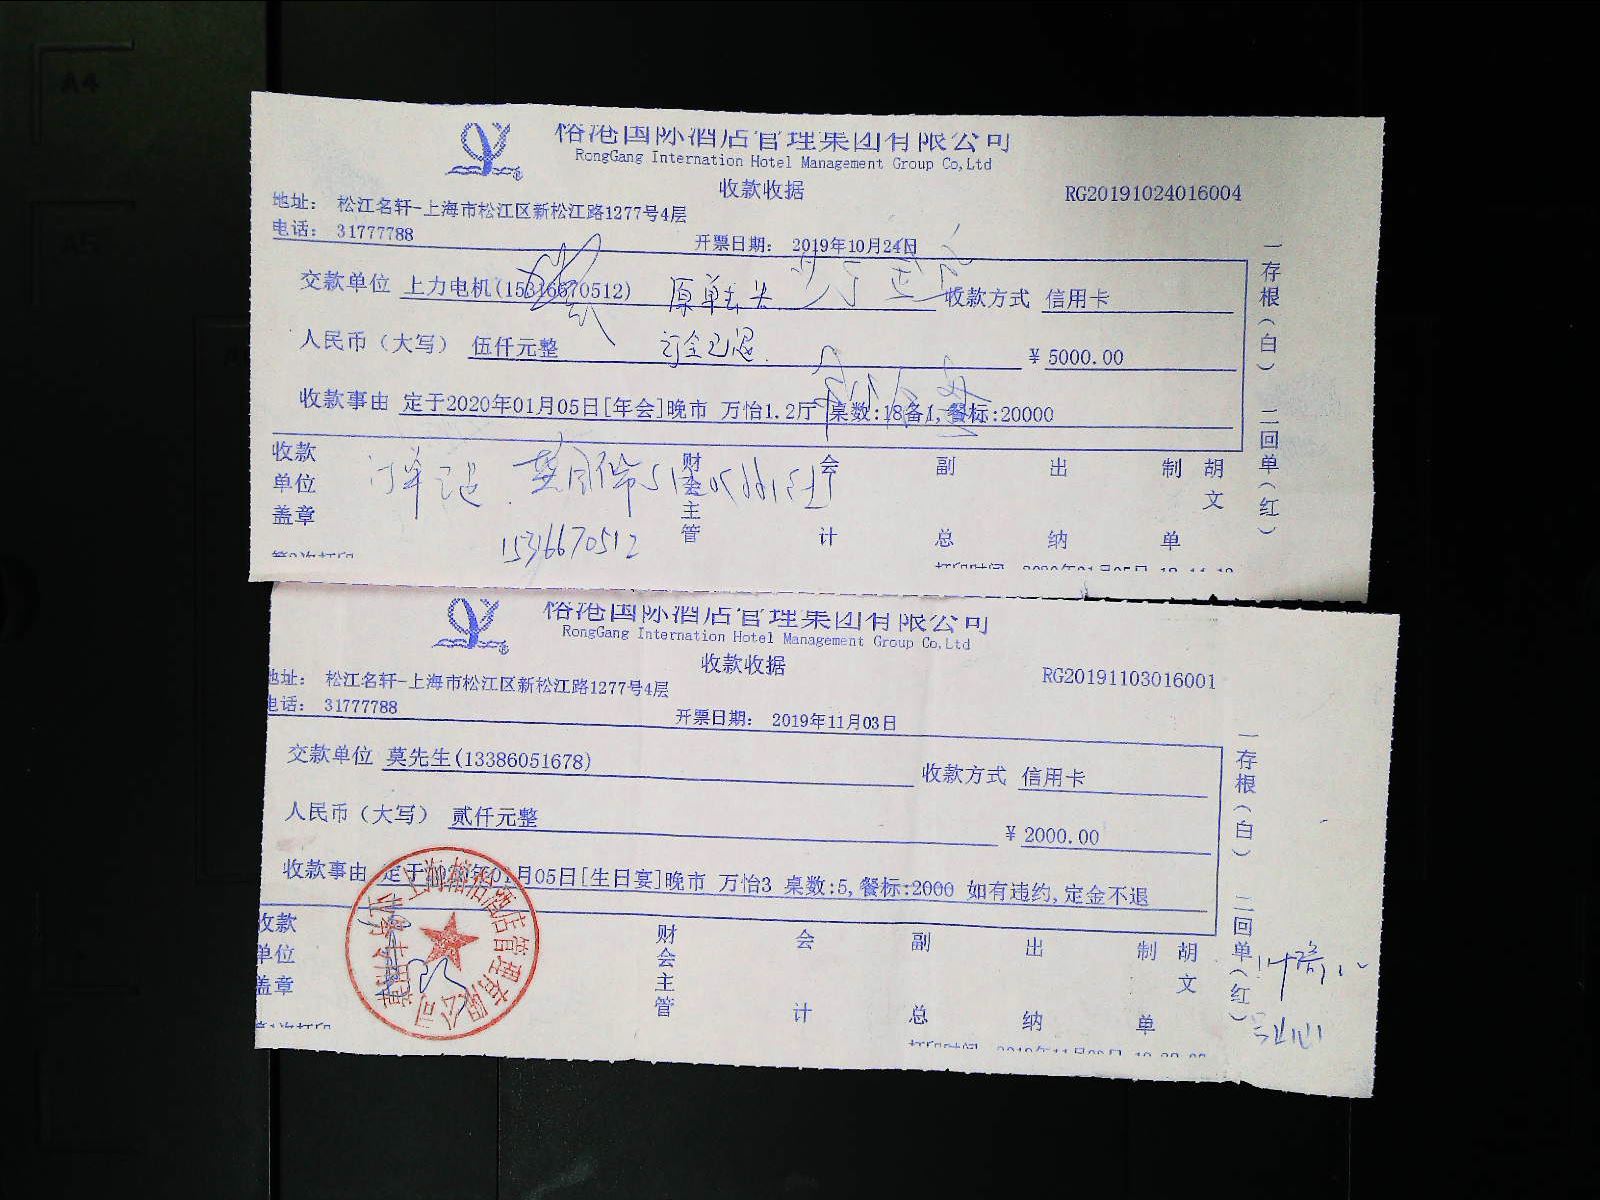 A4
A5
榕港国际酒店管理集团有限公司
RongGang Internation Hotel Management Group Co,Ltd
收款收据
RG20191024016004
地址： 松江名轩-上海市松江区新松江路1277号4层
电话： 31777788
开票日期： 2019年10月24日
交款单位 上力电机(15316670512) 原单丢失 收款方式 信用卡
人民币（大写） 伍仟元整 订金已退 ¥ 5000.00
收款事由 定于2020年01月05日[年会]晚市 万怡1.2厅 桌数:18备1,餐标:20000
收款单位盖章 财会主管 会计 副总 出纳 制单 胡文
15316670512
一存根（白） 二回单（红）
榕港国际酒店管理集团有限公司
RongGang Internation Hotel Management Group Co,Ltd
收款收据
RG20191103016001
地址： 松江名轩-上海市松江区新松江路1277号4层
电话： 31777788
开票日期： 2019年11月03日
交款单位 莫先生(13386051678) 收款方式 信用卡
人民币（大写） 贰仟元整 ¥ 2000.00
收款事由 定于2020年01月05日[生日宴]晚市 万怡3 桌数:5,餐标:2000 如有违约,定金不退
收款单位盖章 财会主管 会计 副总 出纳 制单 胡文
一存根（白） 二回单（红）